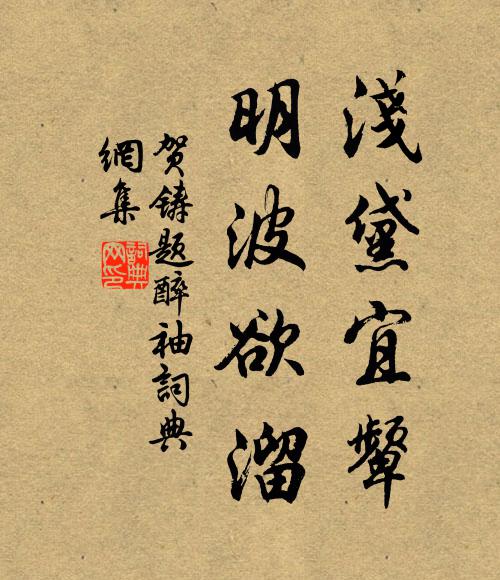 淺黛宜顰
明波欲溜
贺鑄題醉袖詞典
網集
詞典
网印